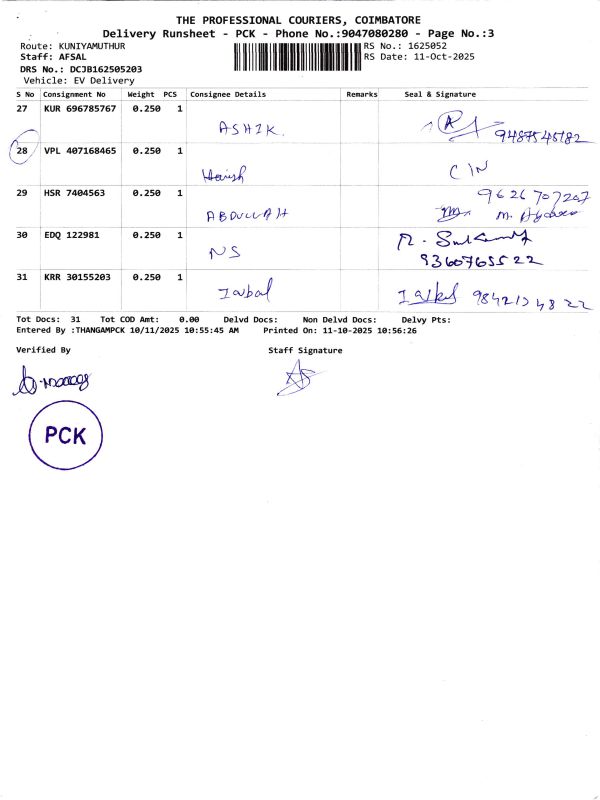 THE PROFESSIONAL COURIERS, COIMBATORE
Delivery Runsheet - PCK - Phone No.:9047080280 - Page No.:3
Route: KUNIYAMUTHUR RS No.: 1625052
Staff: AFSAL RS Date: 11-Oct-2025
DRS No.: DCJB162505203
Vehicle: EV Delivery
S No Consignment No Weight PCS Consignee Details Remarks Seal & Signature
27 KUR 696785767 0.250 1
ASHIK. A 9487545182
28 VPL 407168465 0.250 1
Harish C IN
29 HSR 7404563 0.250 1 9626707207
ABDULLAH M.
30 EDQ 122981 0.250 1
NS 9360765522
31 KRR 30155203 0.250 1
Iqbal
Tot Docs: 31 Tot COD Amt: 0.00 Delvd Docs: Non Delvd Docs: Delvy Pts:
Entered By :THANGAMPCK 10/11/2025 10:55:45 AM Printed On: 11-10-2025 10:56:26
Verified By Staff Signature
PCK